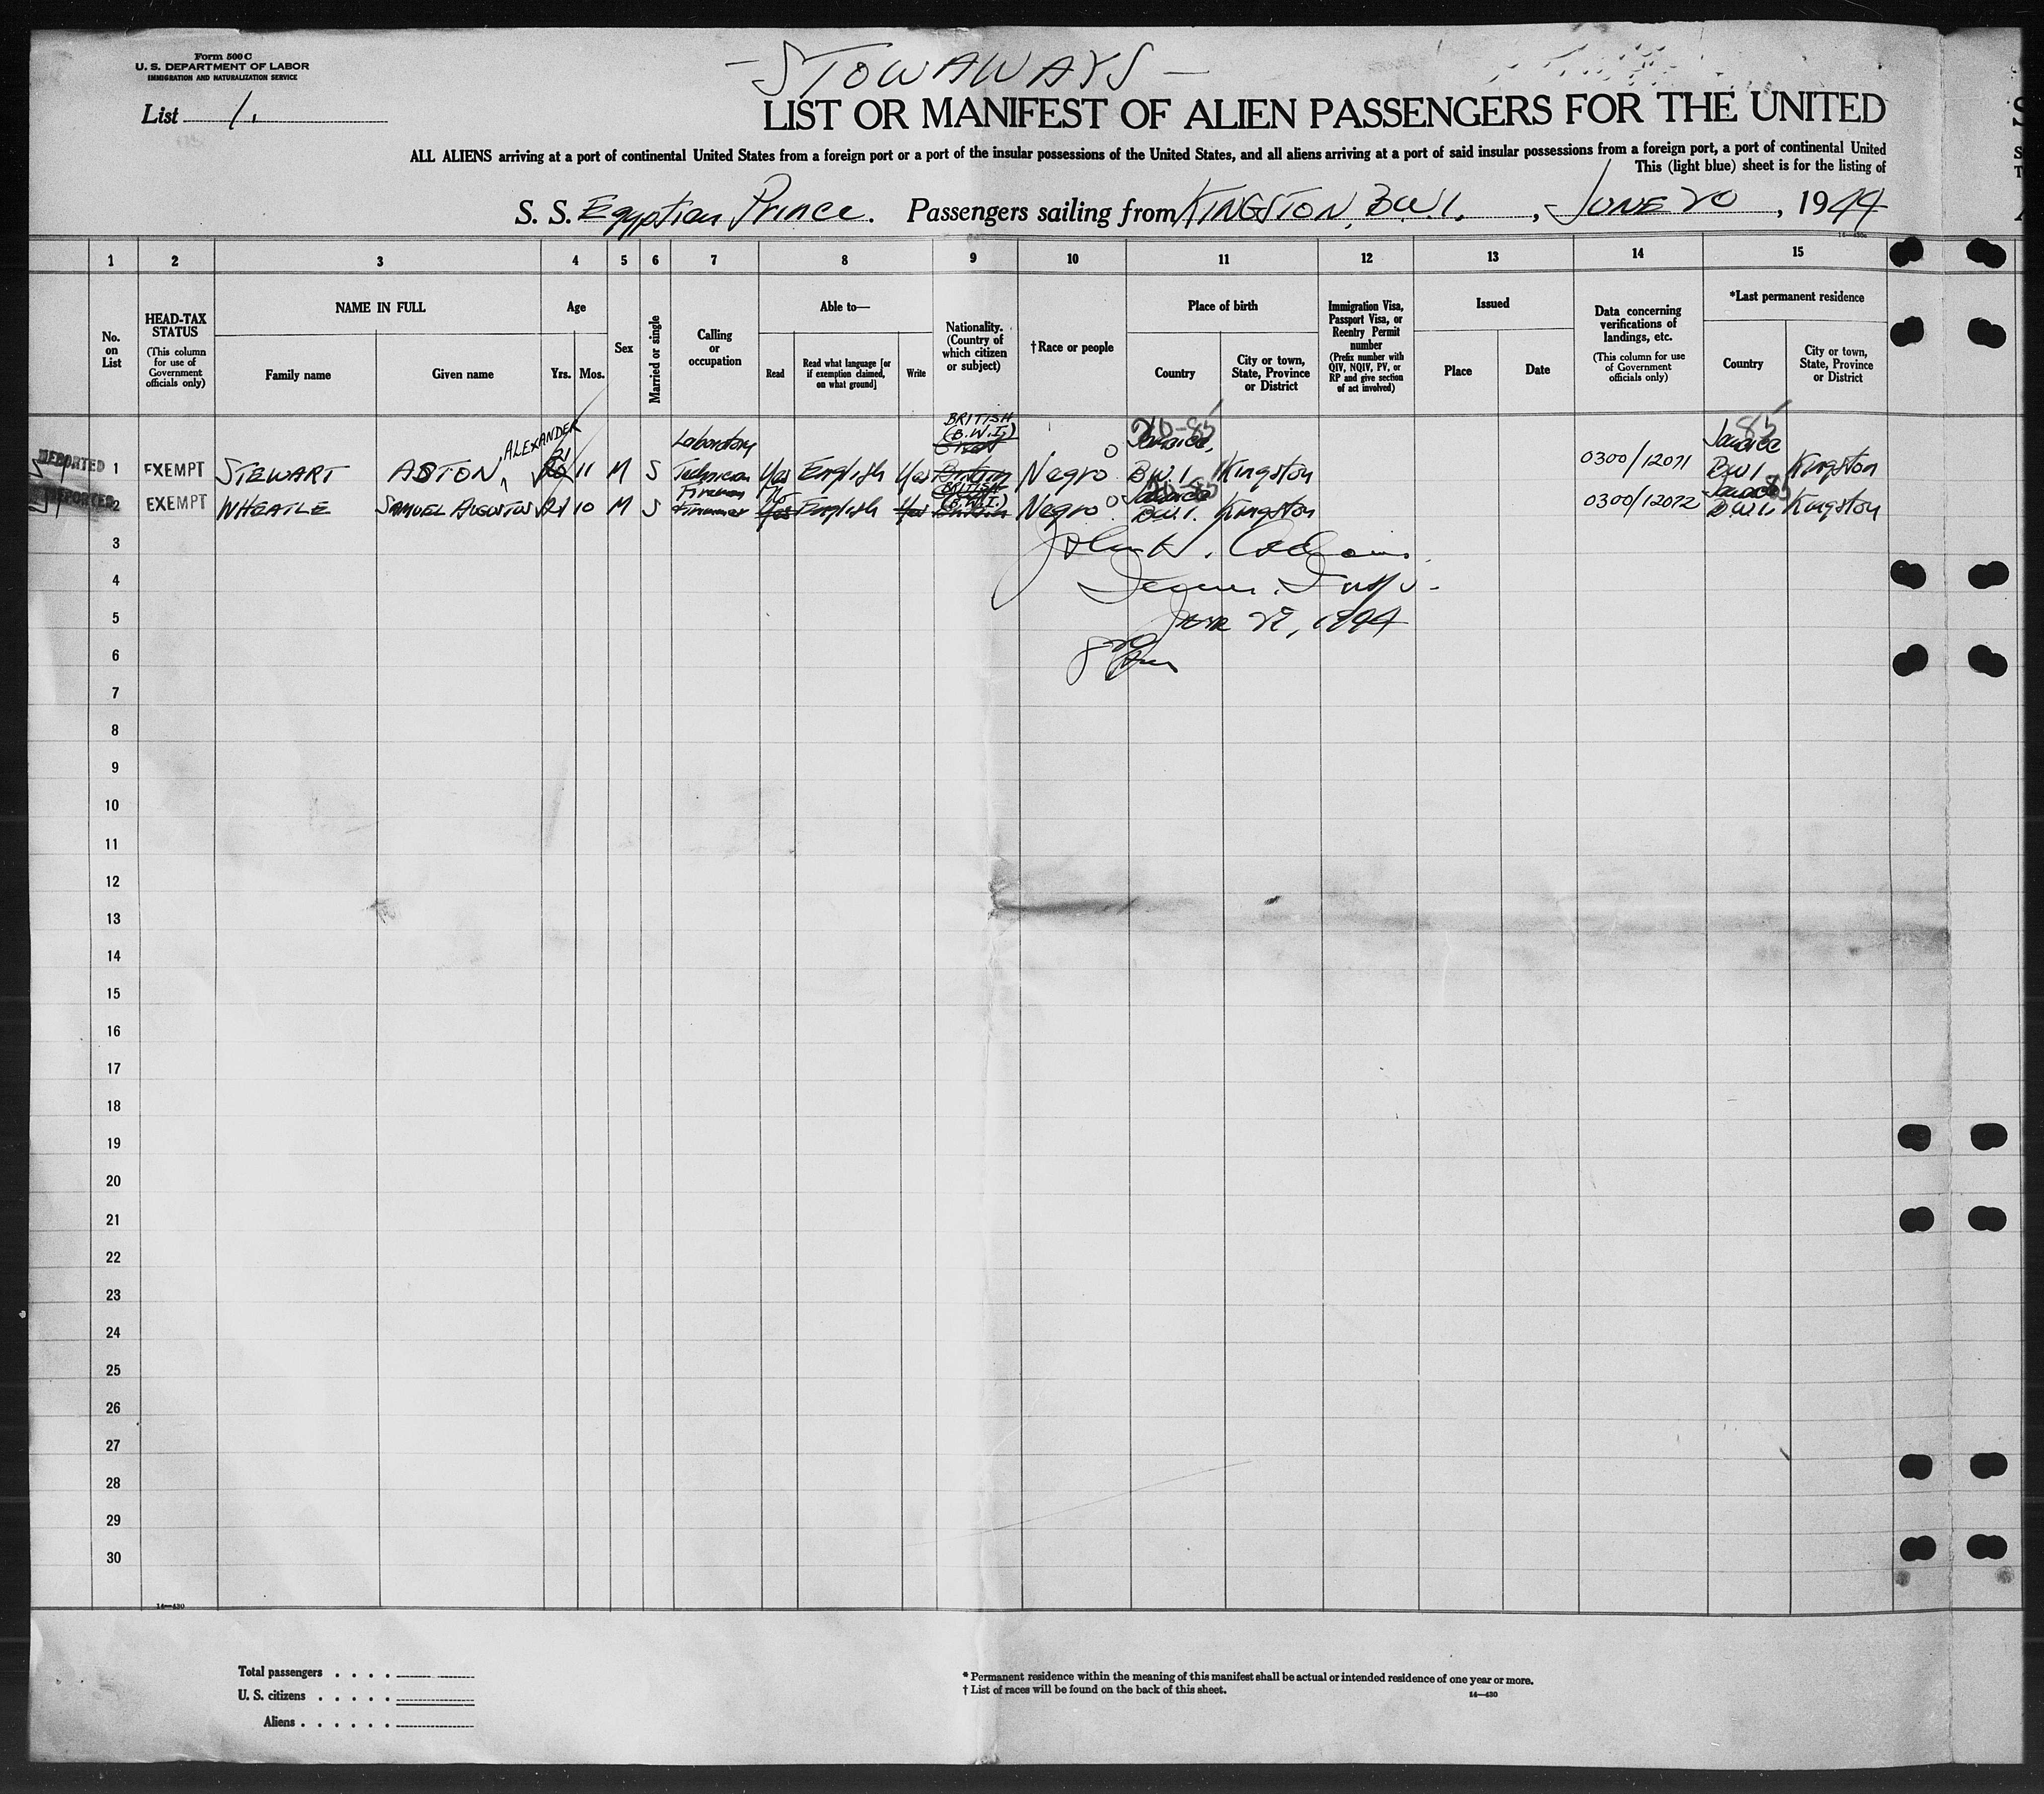 Form 500 C
U. S. DEPARTMENT OF LABOR
IMMIGRATION AND NATURALIZATION SERVICE
- STOWAWAYS -
List 1.
LIST OR MANIFEST OF ALIEN PASSENGERS FOR THE UNITED
ALL ALIENS arriving at a port of continental United States from a foreign port or a port of the insular possessions of the United States, and all aliens arriving at a port of said insular possessions from a foreign port, a port of continental United
This (light blue) sheet is for the listing of
S. S. Egyptian Prince. Passengers sailing from KINGSTON, B.W.I., JUNE 20, 1944
14—430a
1 2 3 4 5 6 7 8 9 10 11 12 13 14 15
No. on List
HEAD-TAX STATUS
(This column for use of Government officials only)
NAME IN FULL
Family name
Given name
Age
Yrs.
Mos.
Sex
Married or single
Calling or occupation
Able to—
Read
Read what language [or if exemption claimed, on what ground]
Write
Nationality. (Country of which citizen or subject)
†Race or people
Place of birth
Country
City or town, State, Province or District
Immigration Visa, Passport Visa, or Reentry Permit number
(Prefix number with QIV, NQIV, PV, or RP and give section of act involved)
Issued
Place
Date
Data concerning verifications of landings, etc.
(This column for use of Government officials only)
*Last permanent residence
Country
City or town, State, Province or District
DEPORTED 1 EXEMPT STEWART ASTON, ALEXANDER 21 11 M S Laboratory Technician Yes English Yes BRITISH (B.W.I.) Negro Jamaica, B.W.I. Kingston 0300/12071 Jamaica B.W.I. Kingston
DEPORTED 2 EXEMPT WHEATLE SAMUEL AUGUSTUS 21 10 M S Fireman No Yes English Yes BRITISH (B.W.I.) Negro Jamaica B.W.I. Kingston 0300/12072 Jamaica B.W.I. Kingston
3
4
5 June 29, 1944
6
7
8
9
10
11
12
13
14
15
16
17
18
19
20
21
22
23
24
25
26
27
28
29
30
14—430
Total passengers
U. S. citizens
Aliens
* Permanent residence within the meaning of this manifest shall be actual or intended residence of one year or more.
† List of races will be found on the back of this sheet.
14—430